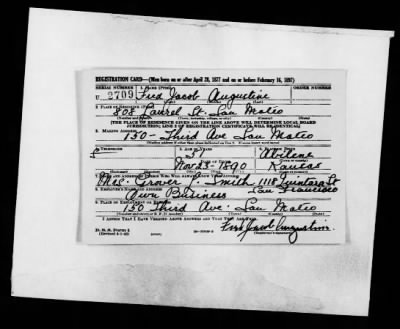 REGISTRATION CARD—(Men born on or after April 28, 1877 and on or before February 16, 1897)
SERIAL NUMBER 1. NAME (Print) ORDER NUMBER
U 2709 Fred Jacob Augustine
(First) (Middle) (Last)
2. PLACE OF RESIDENCE (Print)
808 Laurel St. San Mateo
[THE PLACE OF RESIDENCE GIVEN ON THE LINE ABOVE WILL DETERMINE LOCAL BOARD
JURISDICTION; LINE 2 OF REGISTRATION CERTIFICATE WILL BE IDENTICAL]
3. MAILING ADDRESS
150 - Third Ave San Mateo
4. TELEPHONE 5. AGE IN YEARS 6. PLACE OF BIRTH
51 Abilene
DATE OF BIRTH
Nov 25 - 1890 Kansas
7. NAME AND ADDRESS OF PERSON WHO WILL ALWAYS KNOW YOUR ADDRESS
Mrs. Grover J. Smith 1118 Quintara St
San Francisco
8. EMPLOYER'S NAME AND ADDRESS
Own Business
9. PLACE OF EMPLOYMENT OR BUSINESS
150 Third Ave. San Mateo
I AFFIRM THAT I HAVE VERIFIED ABOVE ANSWERS AND THAT THEY ARE TRUE.
D. S. S. Form 1 Fred Jacob Augustine